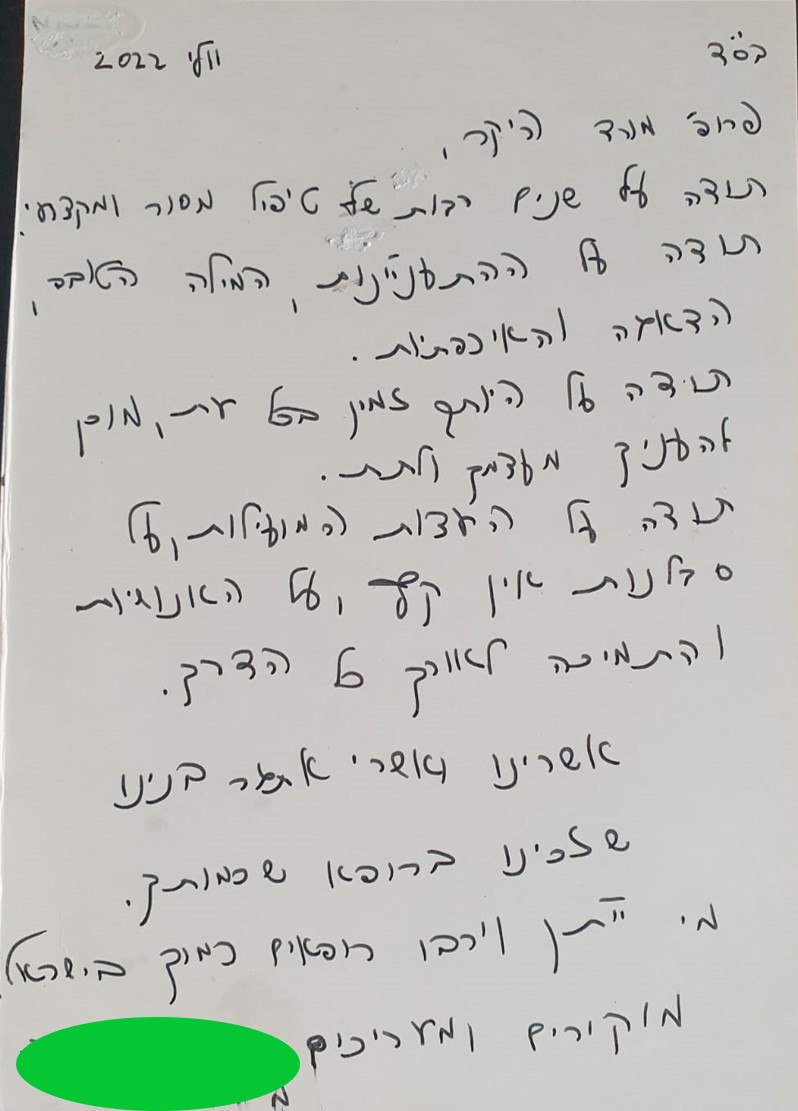 בס"ד
יולי 2022
פרופ' מורד היקר,
תודה על שנים רבות של טיפול מסור ומקצועי.
תודה על ההתעניינות, המילה הטובה,
הדאגה והאיכפתיות.
תודה על היותך זמין בכל עת, מוכן
להעניק מעצמך ולתת.
תודה על העצות המועילות, על
סבלנות אין קץ, על האנושיות
והתמיכה לאורך כל הדרך.
אשרינו ואשרי בנינו
שזכינו ברופא שכמותך.
מי ייתן וירבו רופאים כמוך בישראל.
מוקירים ומעריכים